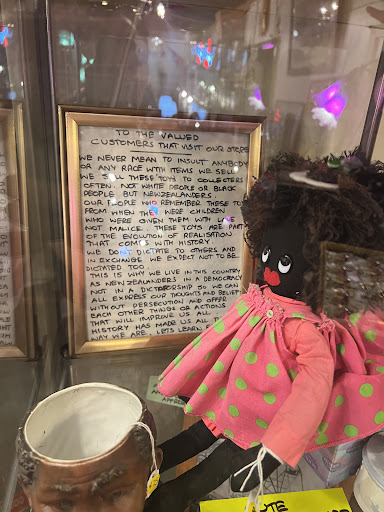 TO THE VALUED
CUSTOMERS THAT VISIT OUR STORE
WE NEVER MEAN TO INSULT ANYBODY
OR ANY RACE WITH ITEMS WE SELL
WE SELL THESE TOYS TO COLLECTERS
OFTEN. NOT WHITE PEOPLE OR BLACK
PEOPLE BUT NEWZEALANDERS
OUR PEOPLE WHO REMEMBER THESE TOYS
FROM WHEN THEY WERE CHILDREN
WHO WERE GIVEN THEM WITH LOVE
NOT MALICE. THESE TOYS ARE PART
OF THE EVOLUTION OF REALISATION
THAT COMES WITH HISTORY
WE DONT DICTATE TO OTHERS AND
IN EXCHANGE WE EXPECT NOT TO BE
DICTATED TOO.
THIS IS WHY WE LIVE IN THIS COUNTRY
AS NEWZEALANDERS IN A DEMOCRACY
NOT IN A DICTATORSHIP SO WE CAN
ALL EXPRESS OUR THOUGHTS AND BELIEFS
WITHOUT PERSECUTION AND OFFER
EACH OTHER THINGS OR ACTIONS
THAT WILL IMPROVE US ALL
HISTORY HAS MADE US ALL
WAY WE ARE. LETS LEARN